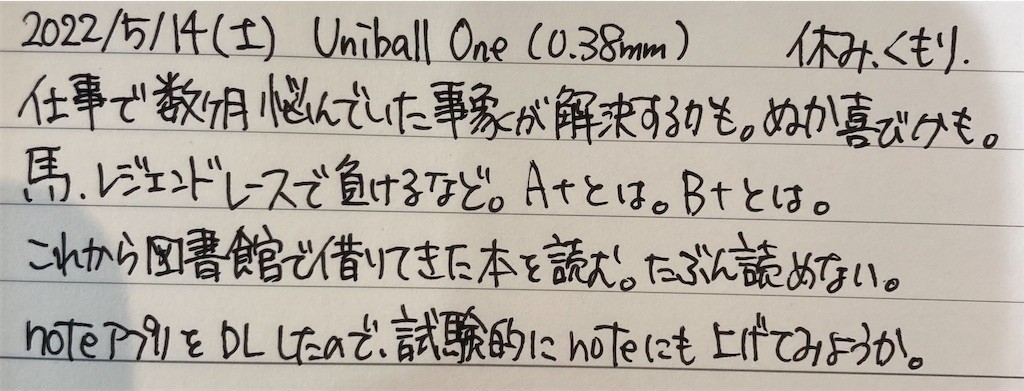 2022/5/14(土) Uniball One (0.38mm) 休み、くもり.
仕事で数ヶ月悩んでいた事象が解決するかも。ぬか喜びかも。
馬、レジェンドレースで負けるなど。A+とは。B+とは。
これから図書館で借りてきた本を読む。たぶん読めない。
noteアプリをDLしたので、試験的にnoteにも上げてみようか。